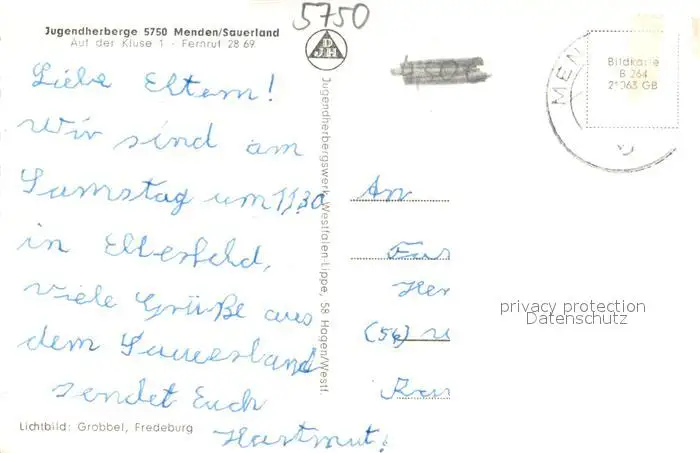 5750
Jugendherberge 5750 Menden/Sauerland
Auf der Kluse 1 - Fernruf 28 69
DJH
Liebe Eltern!
Wir sind am
Samstag um 11³⁰
in Elberfeld,
viele Grüße aus
dem Sauerland
sendet Euch
Hartmut!
Lichtbild: Grobbel, Fredeburg
Jugendherbergswerk Westfalen-Lippe, 58 Hagen/Westf.
MEN
Bildkarte
B 264
21063 GB
An
Fa
Her
(56)
privacy protection
Datenschutz